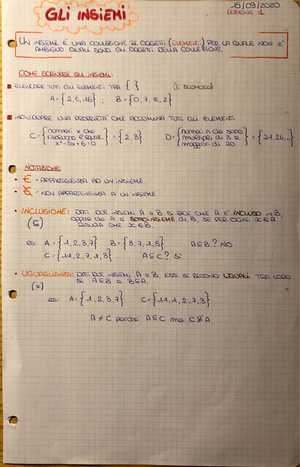 GLI INSIEMI
25/09/2020
LEZIONE 1
UN INSIEME È UNA COLLEZIONE DI OGGETTI (ELEMENTI) PER LA QUALE NON È
AMBIGUO QUALI SONO GLI OGGETTI DELLA COLLEZIONE.
COME SCRIVERE GLI INSIEMI:
ELENCARE TUTTI GLI ELEMENTI TRA { } (È SCOMODO)
A = {2, 4, 16} ; B = {0, 7, 8, 2}
INDIVIDUARE UNA PROPRIETÀ CHE ACCOMUNA TUTTI GLI ELEMENTI
C = {numeri x che risolvono l'equaz. x² - 5x + 6 = 0} = {2, 3} D = {numeri n che sono multipli di 3 e maggiori di 20} = {21, 24...}
NOTAZIONE:
∈ = APPARTENENZA AD UN INSIEME
∉ = NON APPARTENENZA A UN INSIEME
INCLUSIONE: DATI DUE INSIEMI A e B SI DICE CHE A È INCLUSO in B,
(⊆) oppure che A è SOTTOINSIEME di B, SE PER OGNI x∈A
RISULTA CHE x∈B.
es: A = {1, 2, 3, 7} B = {3, 7, 1, 5} A⊆B? NO
C = {11, 2, 7, 1, 3} A⊆C? SÌ
UGUAGLIANZA: DATI DUE INSIEMI A e B, ESSI SI DICONO UGUALI TRA LORO
(=) SE A⊆B e B⊆A.
es: A = {1, 2, 3, 7} C = {11, 1, 2, 7, 3}
A ≠ C perché A⊆C ma C⊈A